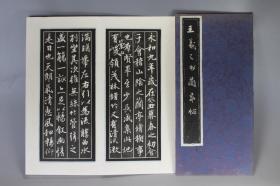 王羲之书蘭亭帖
永和九年歲在癸丑暮春之初會
于會稽山陰之蘭亭脩稧事
也羣賢畢至少長咸集此地
有崇山峻領茂林脩竹又有清流激
湍暎帶左右引以為流觴曲水
列坐其次雖無絲竹管弦之
盛一觴一詠亦足以暢敘幽情
是日也天朗氣清惠風和暢仰